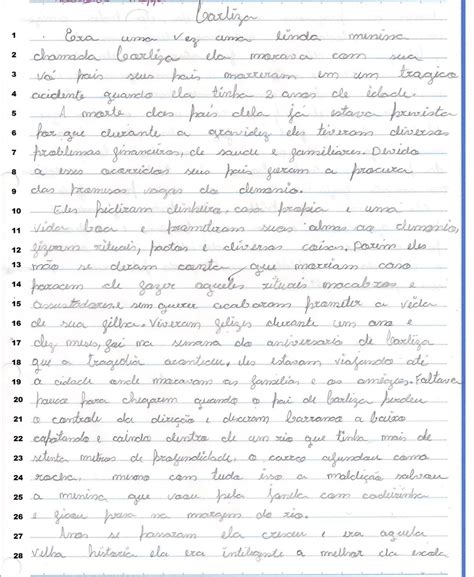 Carliza
1 Era uma vez uma linda menina
2 chamada Carliza ela morava com sua
3 vó pois seus pais morreram em um tragico
4 acidente quando ela tinha 2 anos de idade.
5 A morte dos pais dela já estava prevista
6 por que durante a gravidez eles tiveram diversos
7 problemas financeiros, de saude e familiares. Devido
8 a esse ocorridos seus pais foram a procura
9 das promessas vagas do demonio.
10 Eles pediram dinheiro, casa propia e uma
11 vida boa e prometiram suas almas ao demonio,
12 fizeram rituais, pactos e diversas coisas. Porém eles
13 não se deram conta que morriam caso
14 paracem de fazer aqueles rituais macabros e
15 assustadores e sem querer acabaram prometer a vida
16 de sua filha. Viveram felizes durante um ano e
17 dez meses, foi na semana do aniversario de Carliza
18 que a tragédia aconteceu, eles estavam viajando até
19 a cidade onde moravam as familias e os amigos. Faltava
20 pouco para chegarem quando o pai de Carliza perdeu
21 o controle da direção e desceram barranco a baixo
22 capotando e caindo dentro de um rio que tinha mais de
23 setenta metros de profundidade, o carro afundou como
24 rocha, mesmo com tudo isso a maldição salvou
25 a menina que voou pela janela com cadeirinha
26 e ficou presa na margem do rio.
27 Anos se passaram ela cresceu e era aquela
28 velha historia ela era inteligente a melhor da escola